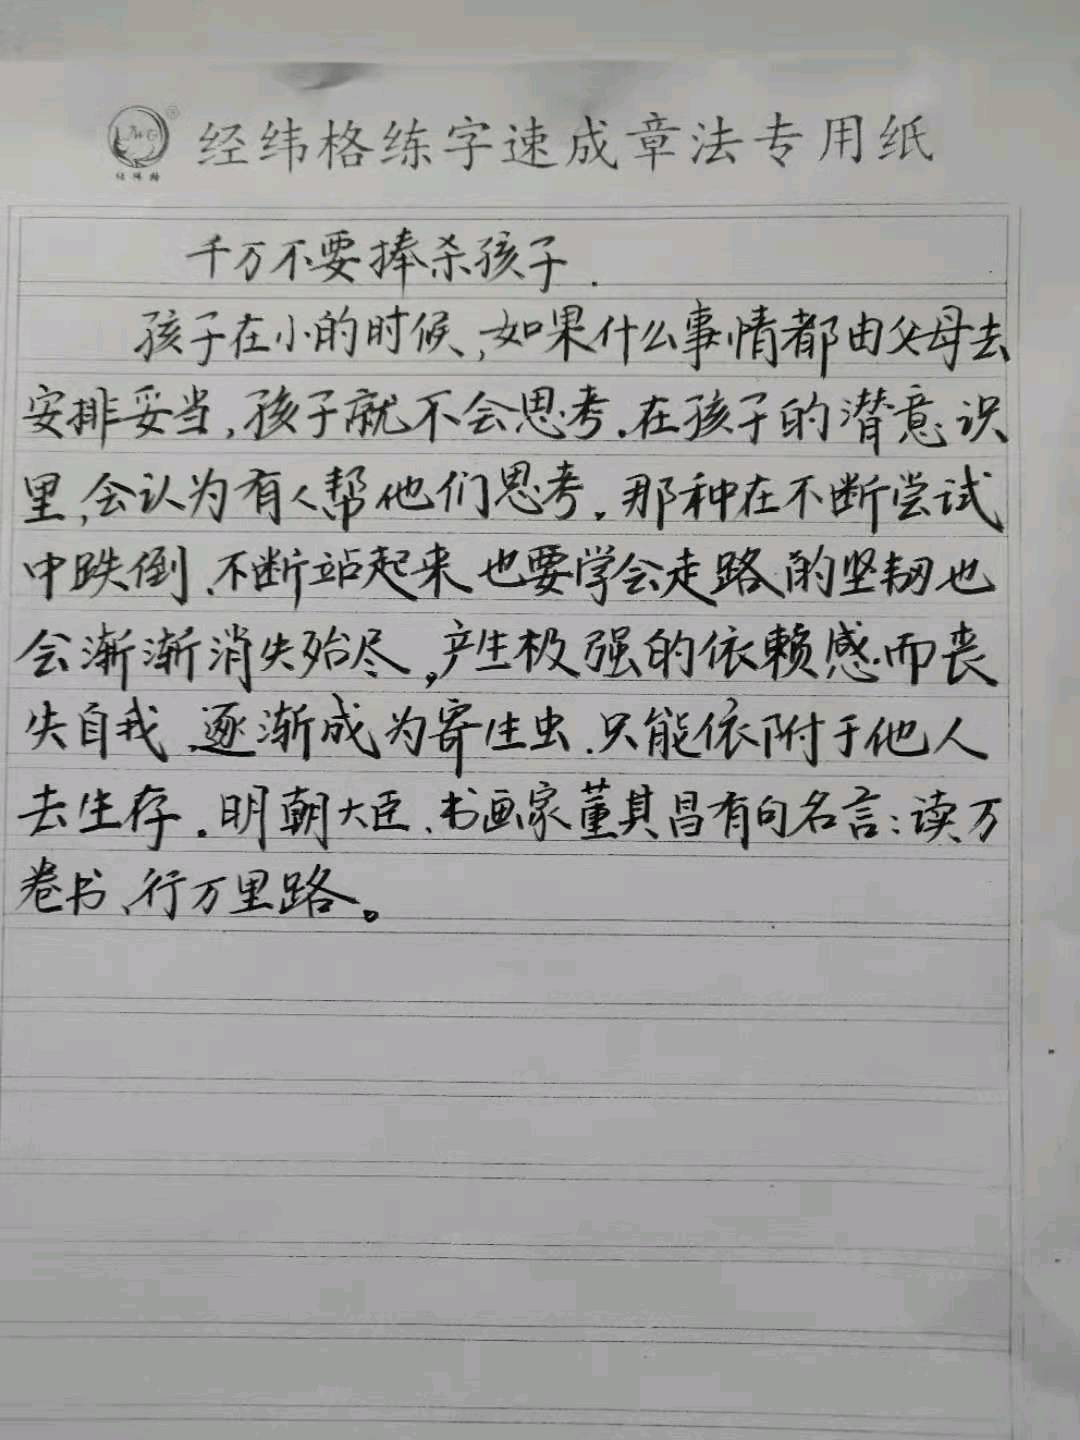 经纬格练字速成章法专用纸
千万不要捧杀孩子.
孩子在小的时候,如果什么事情都由父母去
安排妥当,孩子就不会思考.在孩子的潜意识
里,会认为有人帮他们思考。那种在不断尝试
中跌倒、不断站起来也要学会走路的坚韧也
会渐渐消失殆尽。产生极强的依赖感.而丧
失自我.逐渐成为寄生虫.只能依附于他人
去生存.明朝大臣、书画家董其昌有句名言:读万
卷书、行万里路。